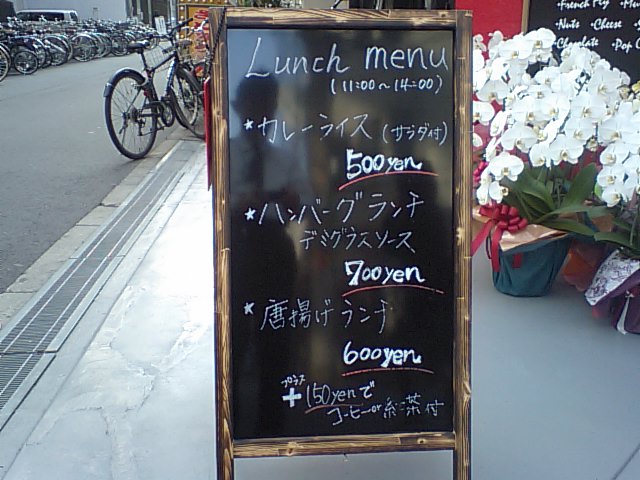 Lunch menu
(11:00～14:00)
★カレーライス (サラダ付)
500yen
★ハンバーグランチ
デミグラスソース
700yen
★唐揚げランチ
600yen
プラス
+150yenで
コーヒーor紅茶付
French Fry
Nuts ・Cheese
Chocolate ・Pop